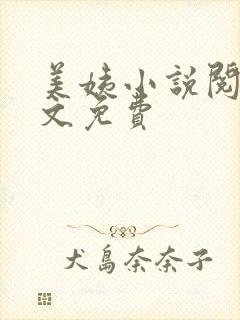 美姨小说閱
文免費
犬島奈奈子